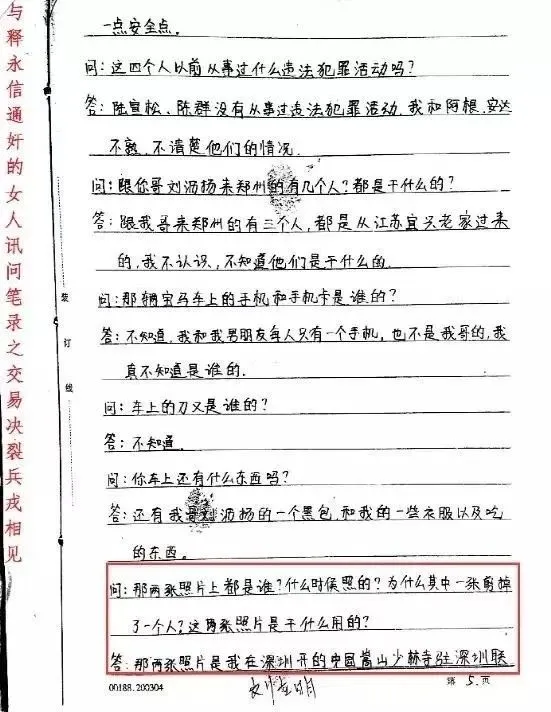 与释永信通奸的女人讯问笔录之交易决裂兵戎相见
一点安全点。
问:这四个人以前从事过什么违法犯罪活动吗?
答:陆宣松、陈群没有从事过违法犯罪活动.我和阿根、安达
不熟.不清楚他们的情况.
问:跟你哥刘沥扬来郑州的有几个人?都是干什么的?
答:跟我哥来郑州的有三个人,都是从江苏宜兴老家过来
的,我不认识,不知道他们是干什么的.
问:那辆宝马车上的手机和手机卡是谁的?
答:不知道,我和我男朋友每人只有一个手机,也不是我哥的,我
真不知道是谁的.
问:车上的刀又是谁的?
答:不知道.
问:你车上还有什么东西吗?
答:还有我哥刘沥扬的一个黑包,和我的一些衣服以及吃
的东西。
问:那两张照片上都是谁?什么时候照的?为什么其中一张剪掉
了一个人?这两张照片是干什么用的?
答:那两张照片是我在深圳开的中国嵩山少林寺驻深圳联
装订线
00188.200304
第5页